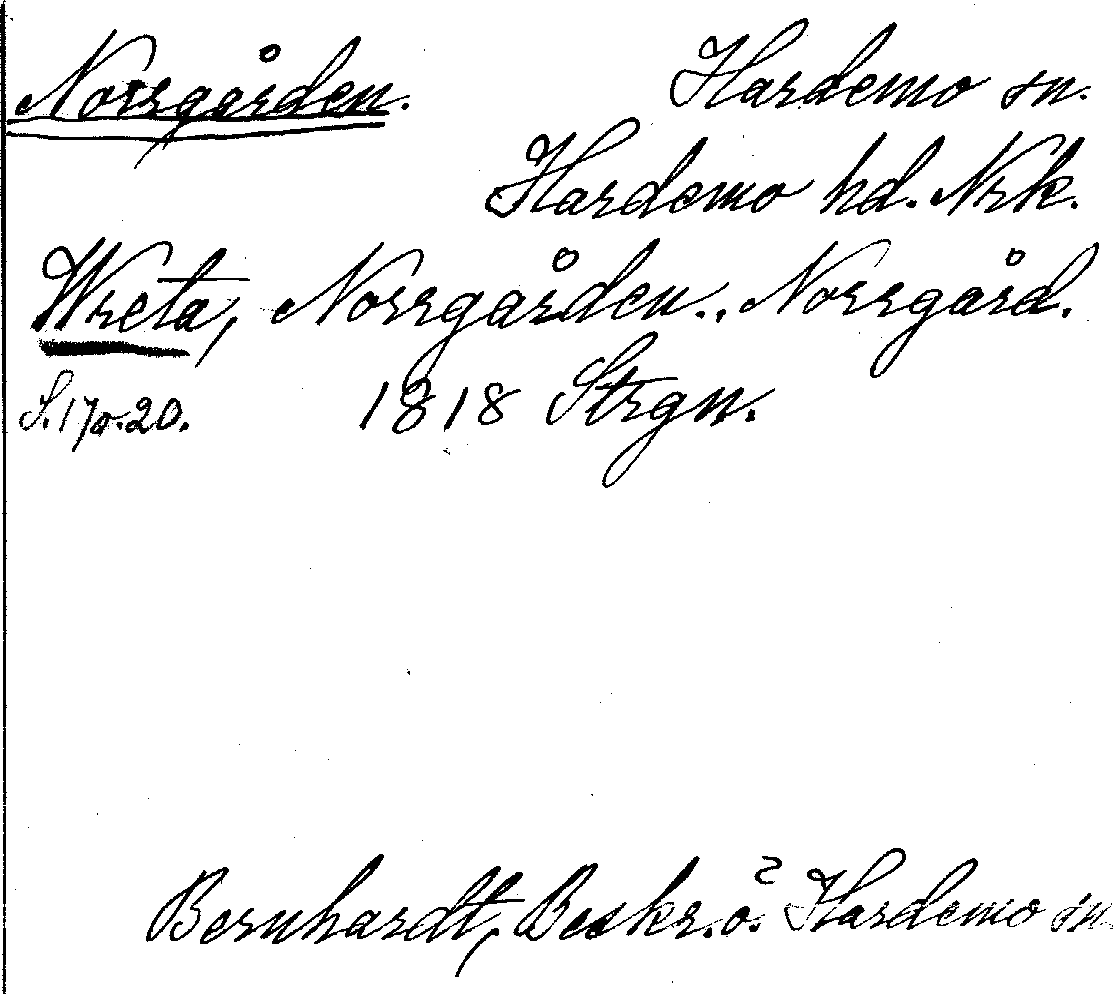 Norrgården. Hardemo sn.
Hardemo hd. Nrk.
Wreta, Norrgården., Norrgård.
S. 17 o. 20. 1818 Strgn.
Bernhardt, Beskr. ö. Hardemo sn.